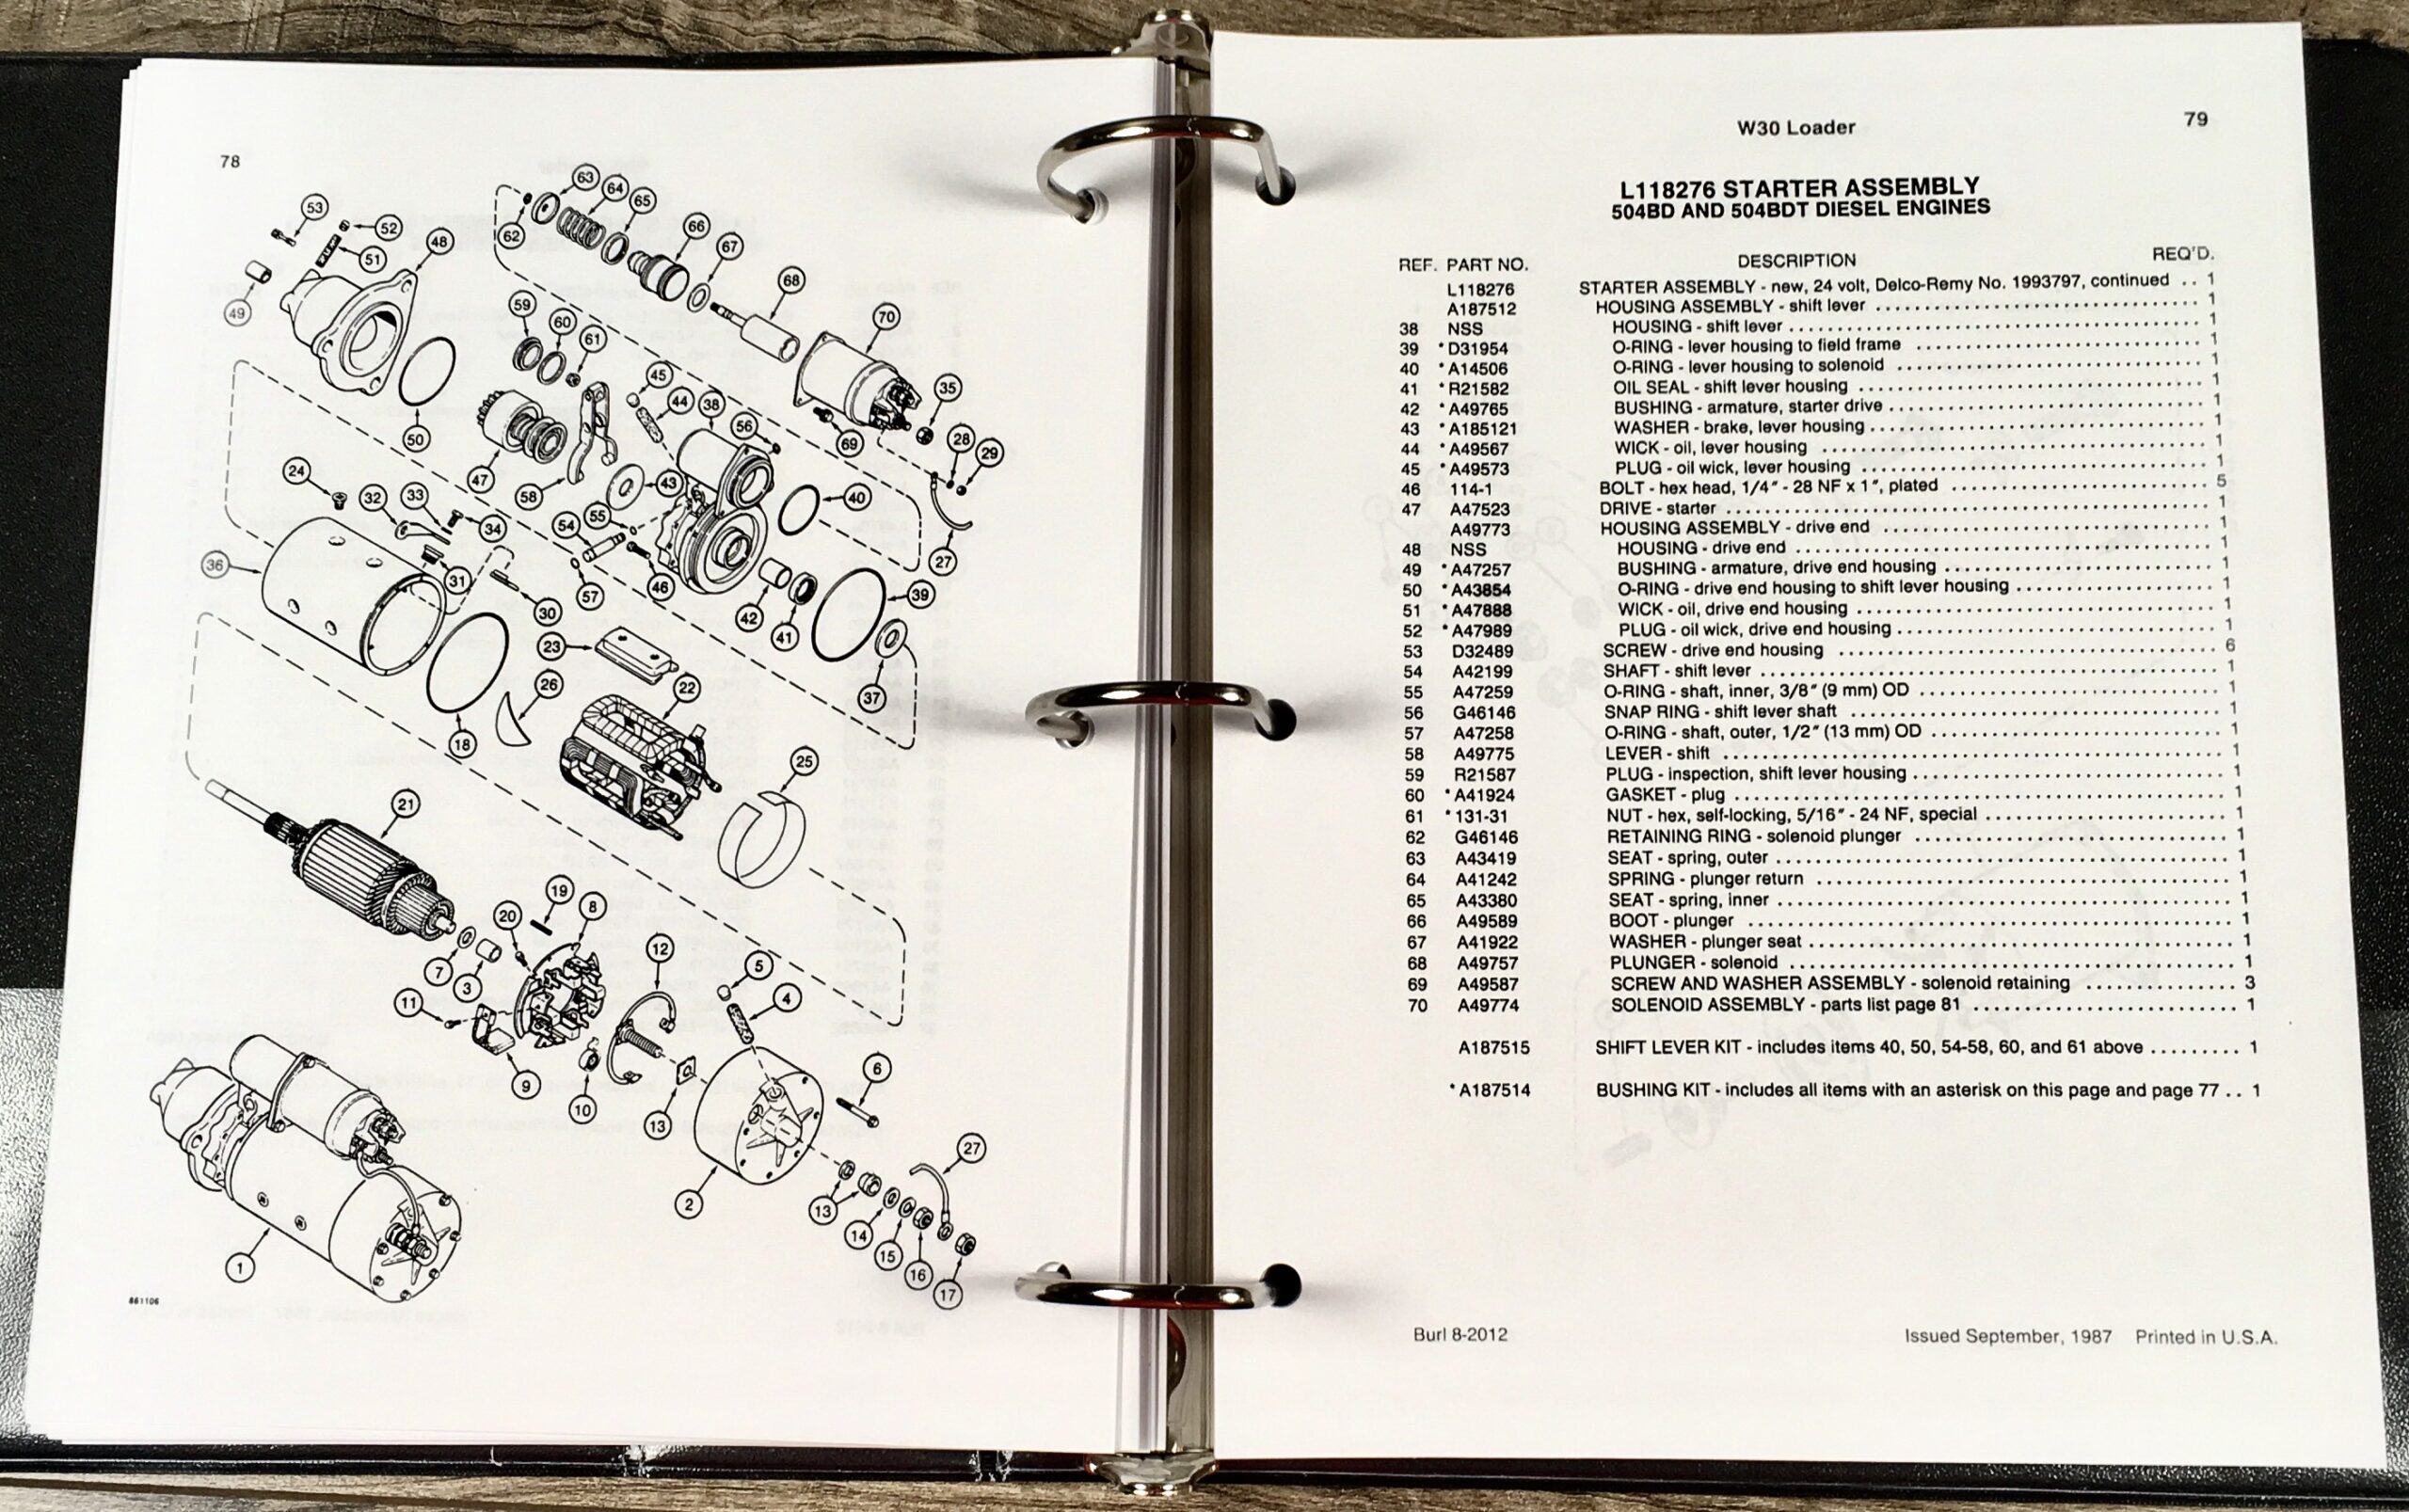 78
53
52
51
48
49
50
63
64
65
62
66
67
68
59
60
61
70
45
44
38
56
35
69
28
29
47
58
43
40
24
32
33
34
55
54
27
36
31
30
57
46
42
41
39
37
23
26
22
18
25
21
19
20
8
12
5
4
7
3
11
9
10
13
6
2
27
13
14
15
16
17
1
861106
W30 Loader 79
L118276 STARTER ASSEMBLY
504BD AND 504BDT DIESEL ENGINES
REF. PART NO. DESCRIPTION REQ'D.
L118276 STARTER ASSEMBLY - new, 24 volt, Delco-Remy No. 1993797, continued .. 1
A187512 HOUSING ASSEMBLY - shift lever ........ 1
38 NSS HOUSING - shift lever ........ 1
39 *D31954 O-RING - lever housing to field frame ........ 1
40 *A14506 O-RING - lever housing to solenoid ........ 1
41 *R21582 OIL SEAL - shift lever housing ........ 1
42 *A49765 BUSHING - armature, starter drive ........ 1
43 *A185121 WASHER - brake, lever housing ........ 1
44 *A49567 WICK - oil, lever housing ........ 1
45 *A49573 PLUG - oil wick, lever housing ........ 1
46 114-1 BOLT - hex head, 1/4" - 28 NF x 1", plated ........ 5
47 A47523 DRIVE - starter ........ 1
A49773 HOUSING ASSEMBLY - drive end ........ 1
48 NSS HOUSING - drive end ........ 1
49 *A47257 BUSHING - armature, drive end housing ........ 1
50 *A43854 O-RING - drive end housing to shift lever housing ........ 1
51 *A47888 WICK - oil, drive end housing ........ 1
52 *A47989 PLUG - oil wick, drive end housing ........ 1
53 D32489 SCREW - drive end housing ........ 6
54 A42199 SHAFT - shift lever ........ 1
55 A47259 O-RING - shaft, inner, 3/8" (9 mm) OD ........ 1
56 G46146 SNAP RING - shift lever shaft ........ 1
57 A47258 O-RING - shaft, outer, 1/2" (13 mm) OD ........ 1
58 A49775 LEVER - shift ........ 1
59 R21587 PLUG - inspection, shift lever housing ........ 1
60 *A41924 GASKET - plug ........ 1
61 *131-31 NUT - hex, self-locking, 5/16" - 24 NF, special ........ 1
62 G46146 RETAINING RING - solenoid plunger ........ 1
63 A43419 SEAT - spring, outer ........ 1
64 A41242 SPRING - plunger return ........ 1
65 A43380 SEAT - spring, inner ........ 1
66 A49589 BOOT - plunger ........ 1
67 A41922 WASHER - plunger seat ........ 1
68 A49757 PLUNGER - solenoid ........ 1
69 A49587 SCREW AND WASHER ASSEMBLY - solenoid retaining ........ 3
70 A49774 SOLENOID ASSEMBLY - parts list page 81 ........ 1
A187515 SHIFT LEVER KIT - includes items 40, 50, 54-58, 60, and 61 above ......... 1
*A187514 BUSHING KIT - includes all items with an asterisk on this page and page 77 .. 1
Burl 8-2012 Issued September, 1987 Printed in U.S.A.